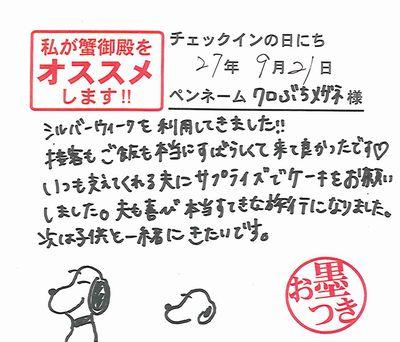 私が蟹御殿を
オススメ
します!!
チェックインの日にち
27年 9月21日
ペンネーム クロぶちメガネ 様
シルバーウィークを利用してきました!!
接客もご飯も本当にすばらしくて来て良かったです♡
いつも支えてくれる夫にサプライズでケーキをお願い
しました。夫も喜び本当すてきな旅行になりました。
次は子供と一緒にきたいです。
お墨つき